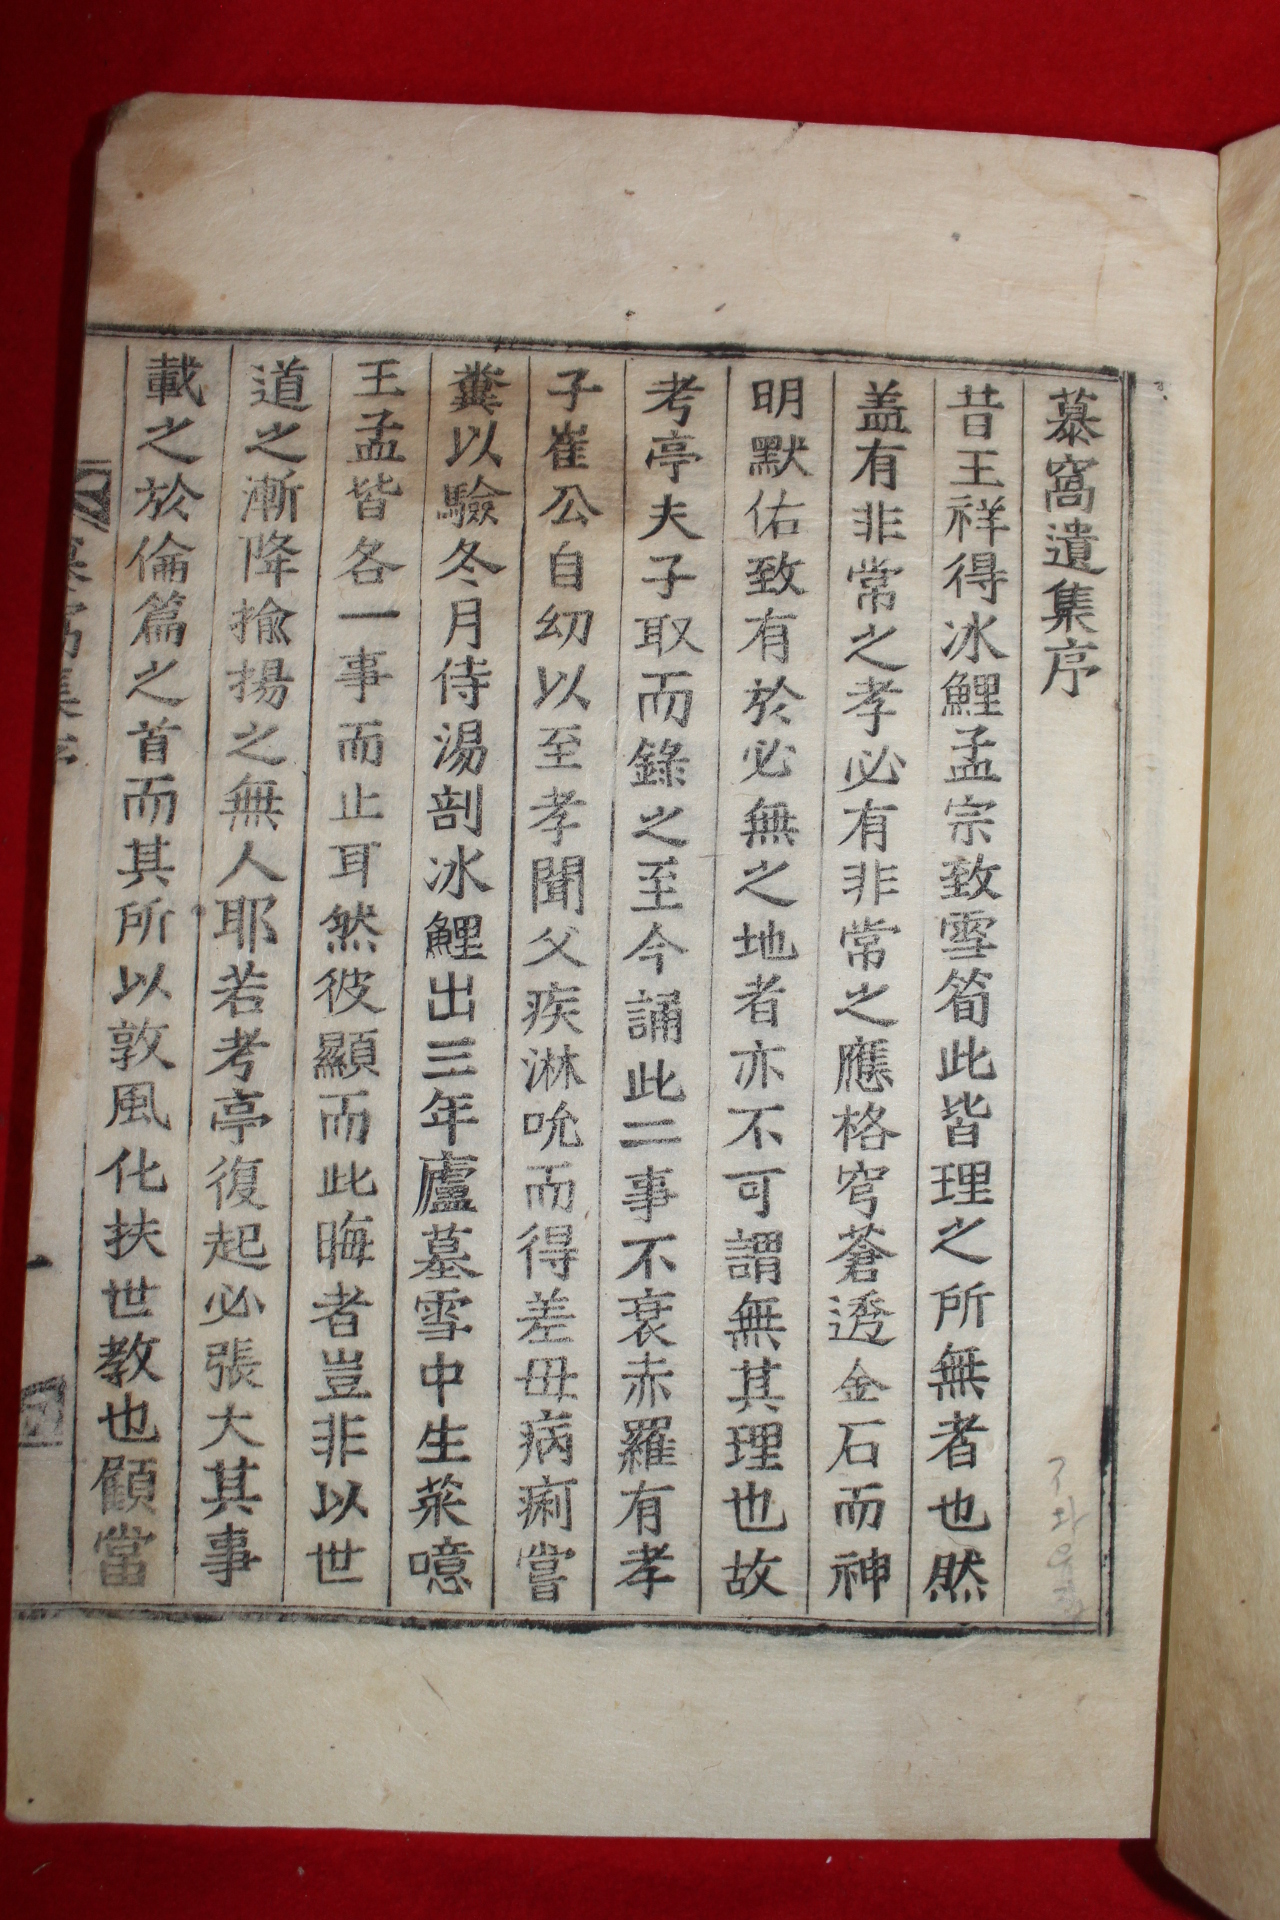 慕窩遺集序
昔王祥得冰鯉孟宗致雪筍此皆理之所無者也然
盖有非常之孝必有非常之應格穹蒼透金石而神
明默佑致有於必無之地者亦不可謂無其理也故
考亭夫子取而錄之至今誦此二事不衰赤羅有孝
子崔公自幼以至孝聞父疾淋吮而得差毋病痢嘗
糞以驗冬月侍湯剖冰鯉出三年廬墓雪中生菜噫
王孟皆各一事而止耳然彼顯而此晦者豈非以世
道之漸降揄揚之無人耶若考亭復起必張大其事
載之於倫篇之首而其所以敦風化扶世教也顧當